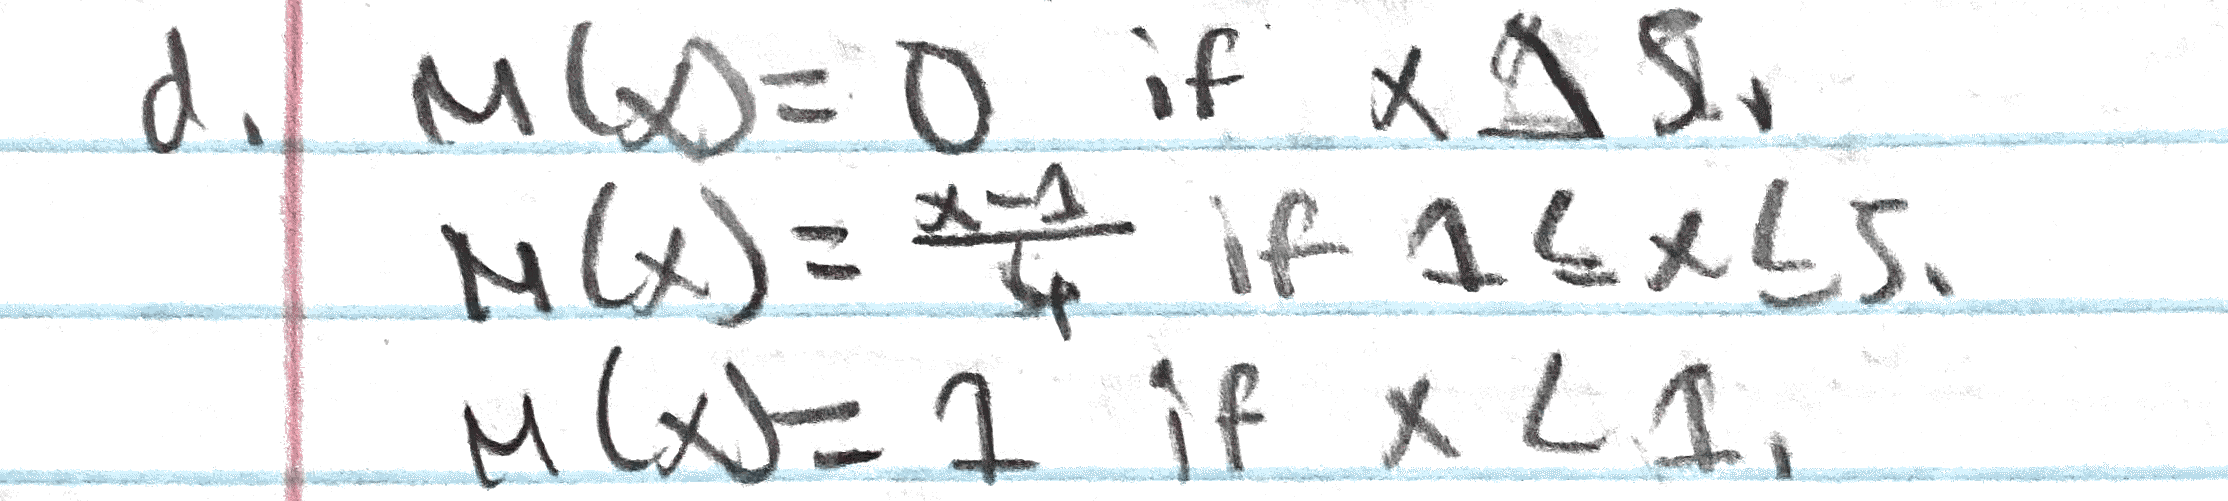 d. M(x)=0 if x > 5,
M(x)= \frac{x-1}{4} if 1 ≤ x ≤ 5,
M(x)=1 if x < 1,